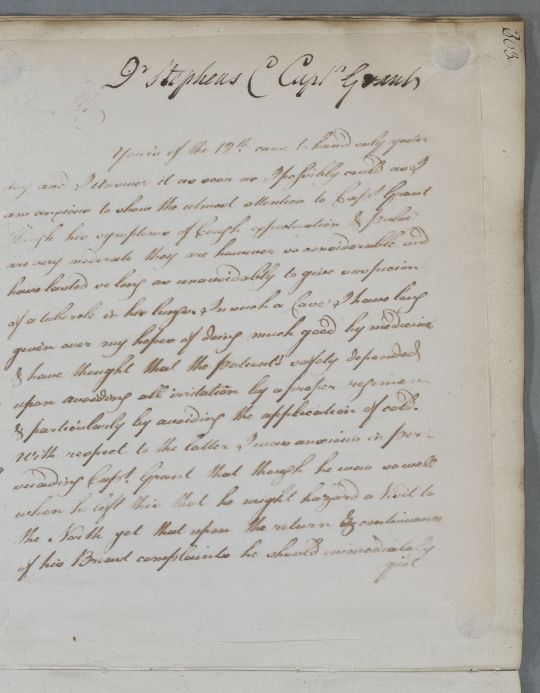 303
Dr Stephens C Captn Grant
Yours of the 12th came to hand only yester
day and I answer it as soon as I possibly could as I
am anxious to shew the utmost attention to Capt. Grant
though his symptoms of Cough expectoration & pulse
are very moderate they are however so considerable and
have lasted so long as unavoidably to give suspicion
of a tubercle in his lungs. In such a Case I have long
given over my hopes of doing much good by medicine
& have thought that the patients safety depended
upon avoiding all irritation by a proper regimen
& particularly by avoiding the application of cold.
With respect to the latter I was anxious in per-
suading Capt. Grant that though he was so well
when he left this that he might hazard a Visit to
the North yet that upon the return & continuance
of his Breast complaints he should immediately
quit